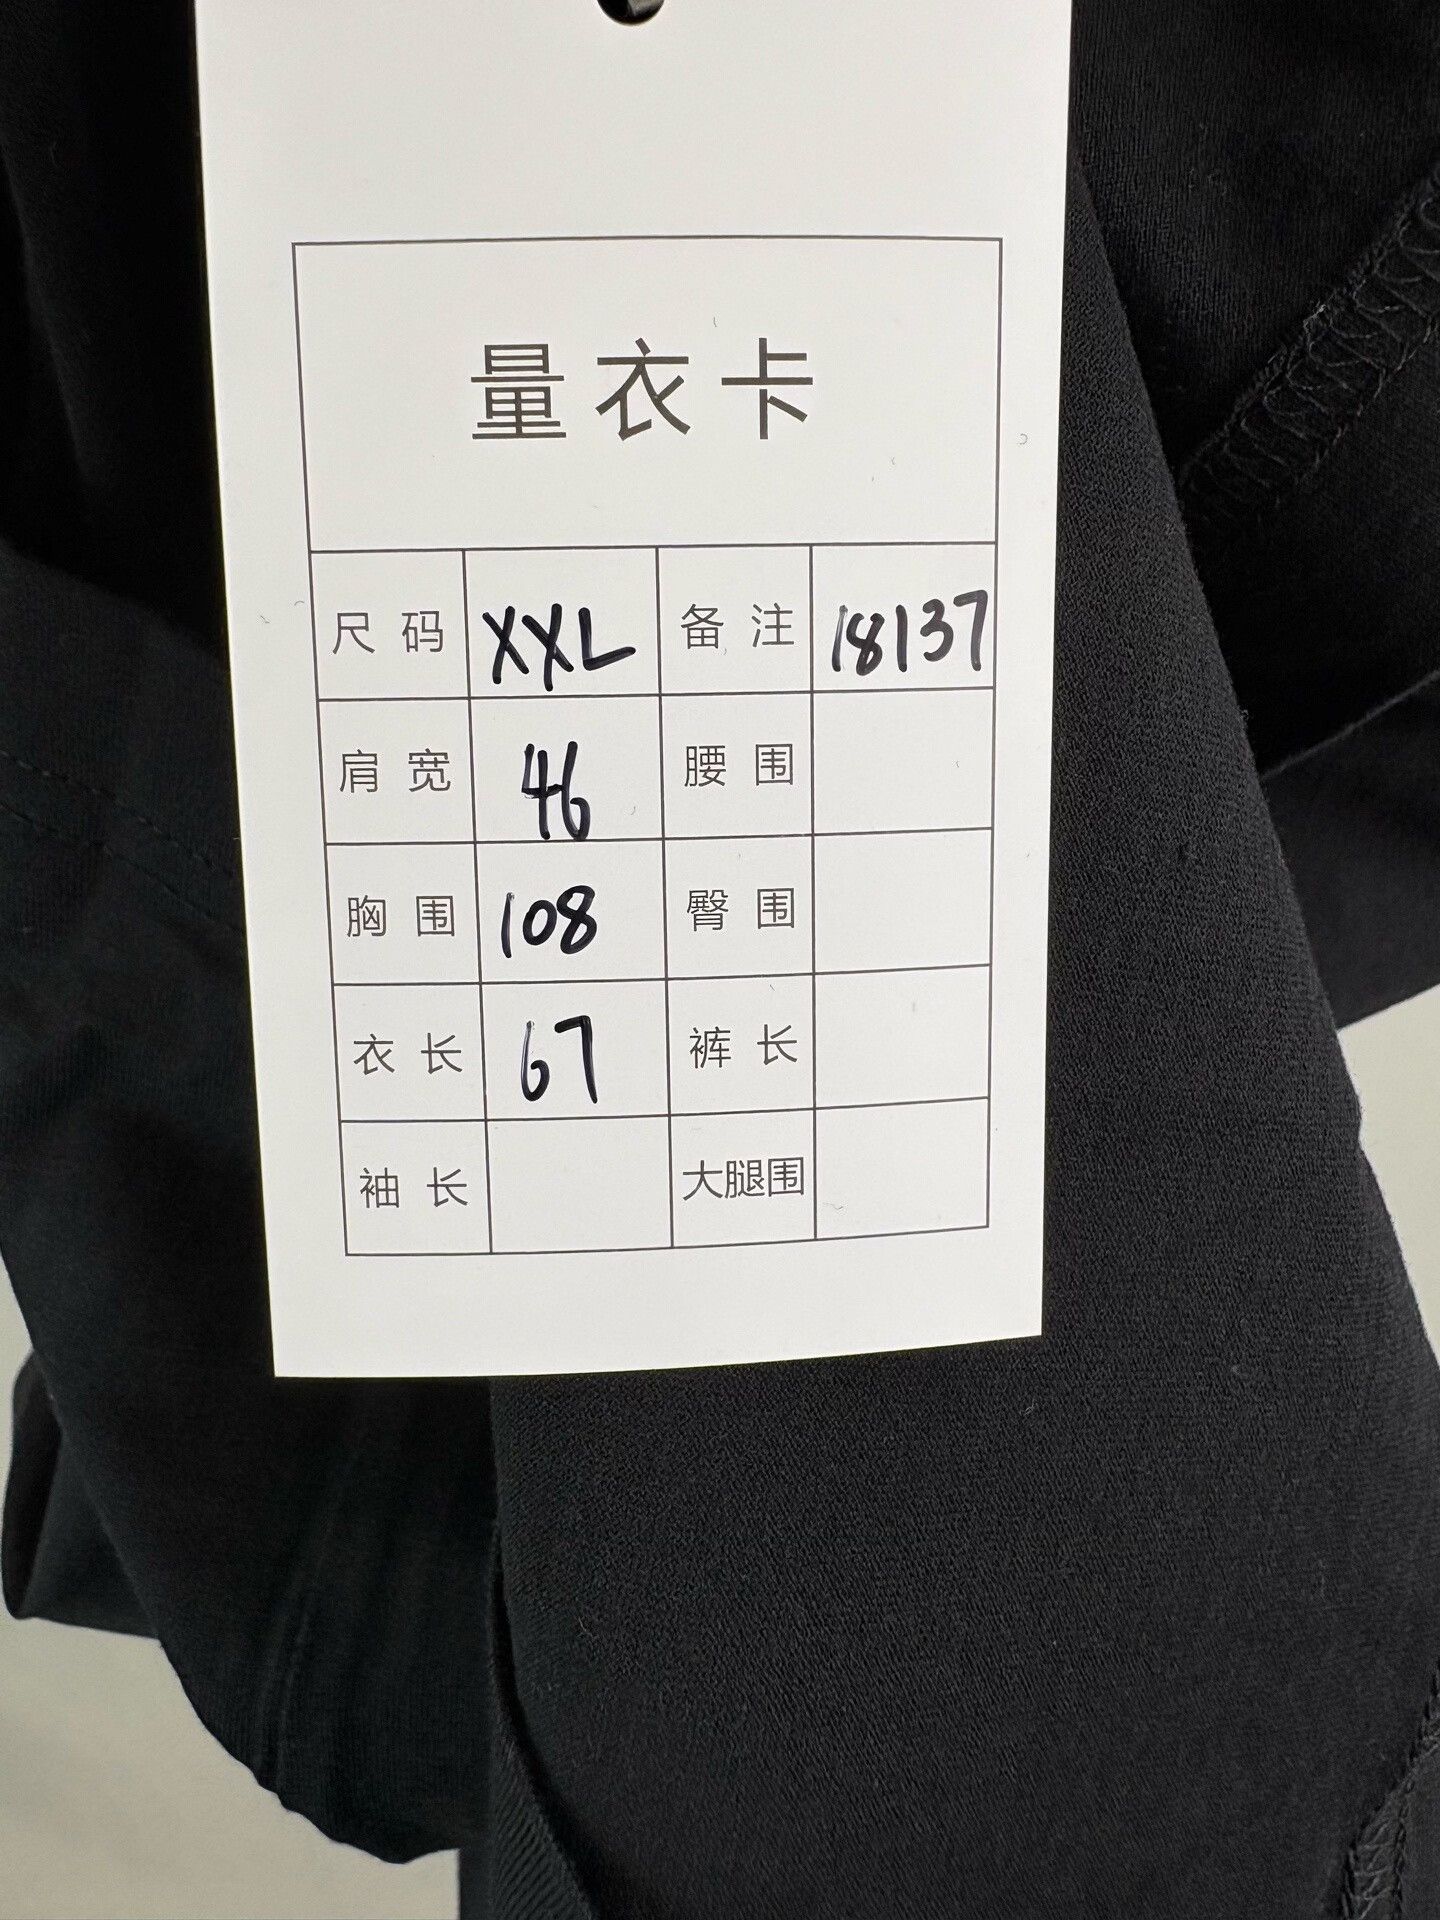 量衣卡
尺码 XXL 备注 18137
肩宽 46 腰围
胸围 108 臀围
衣长 67 裤长
袖长 大腿围